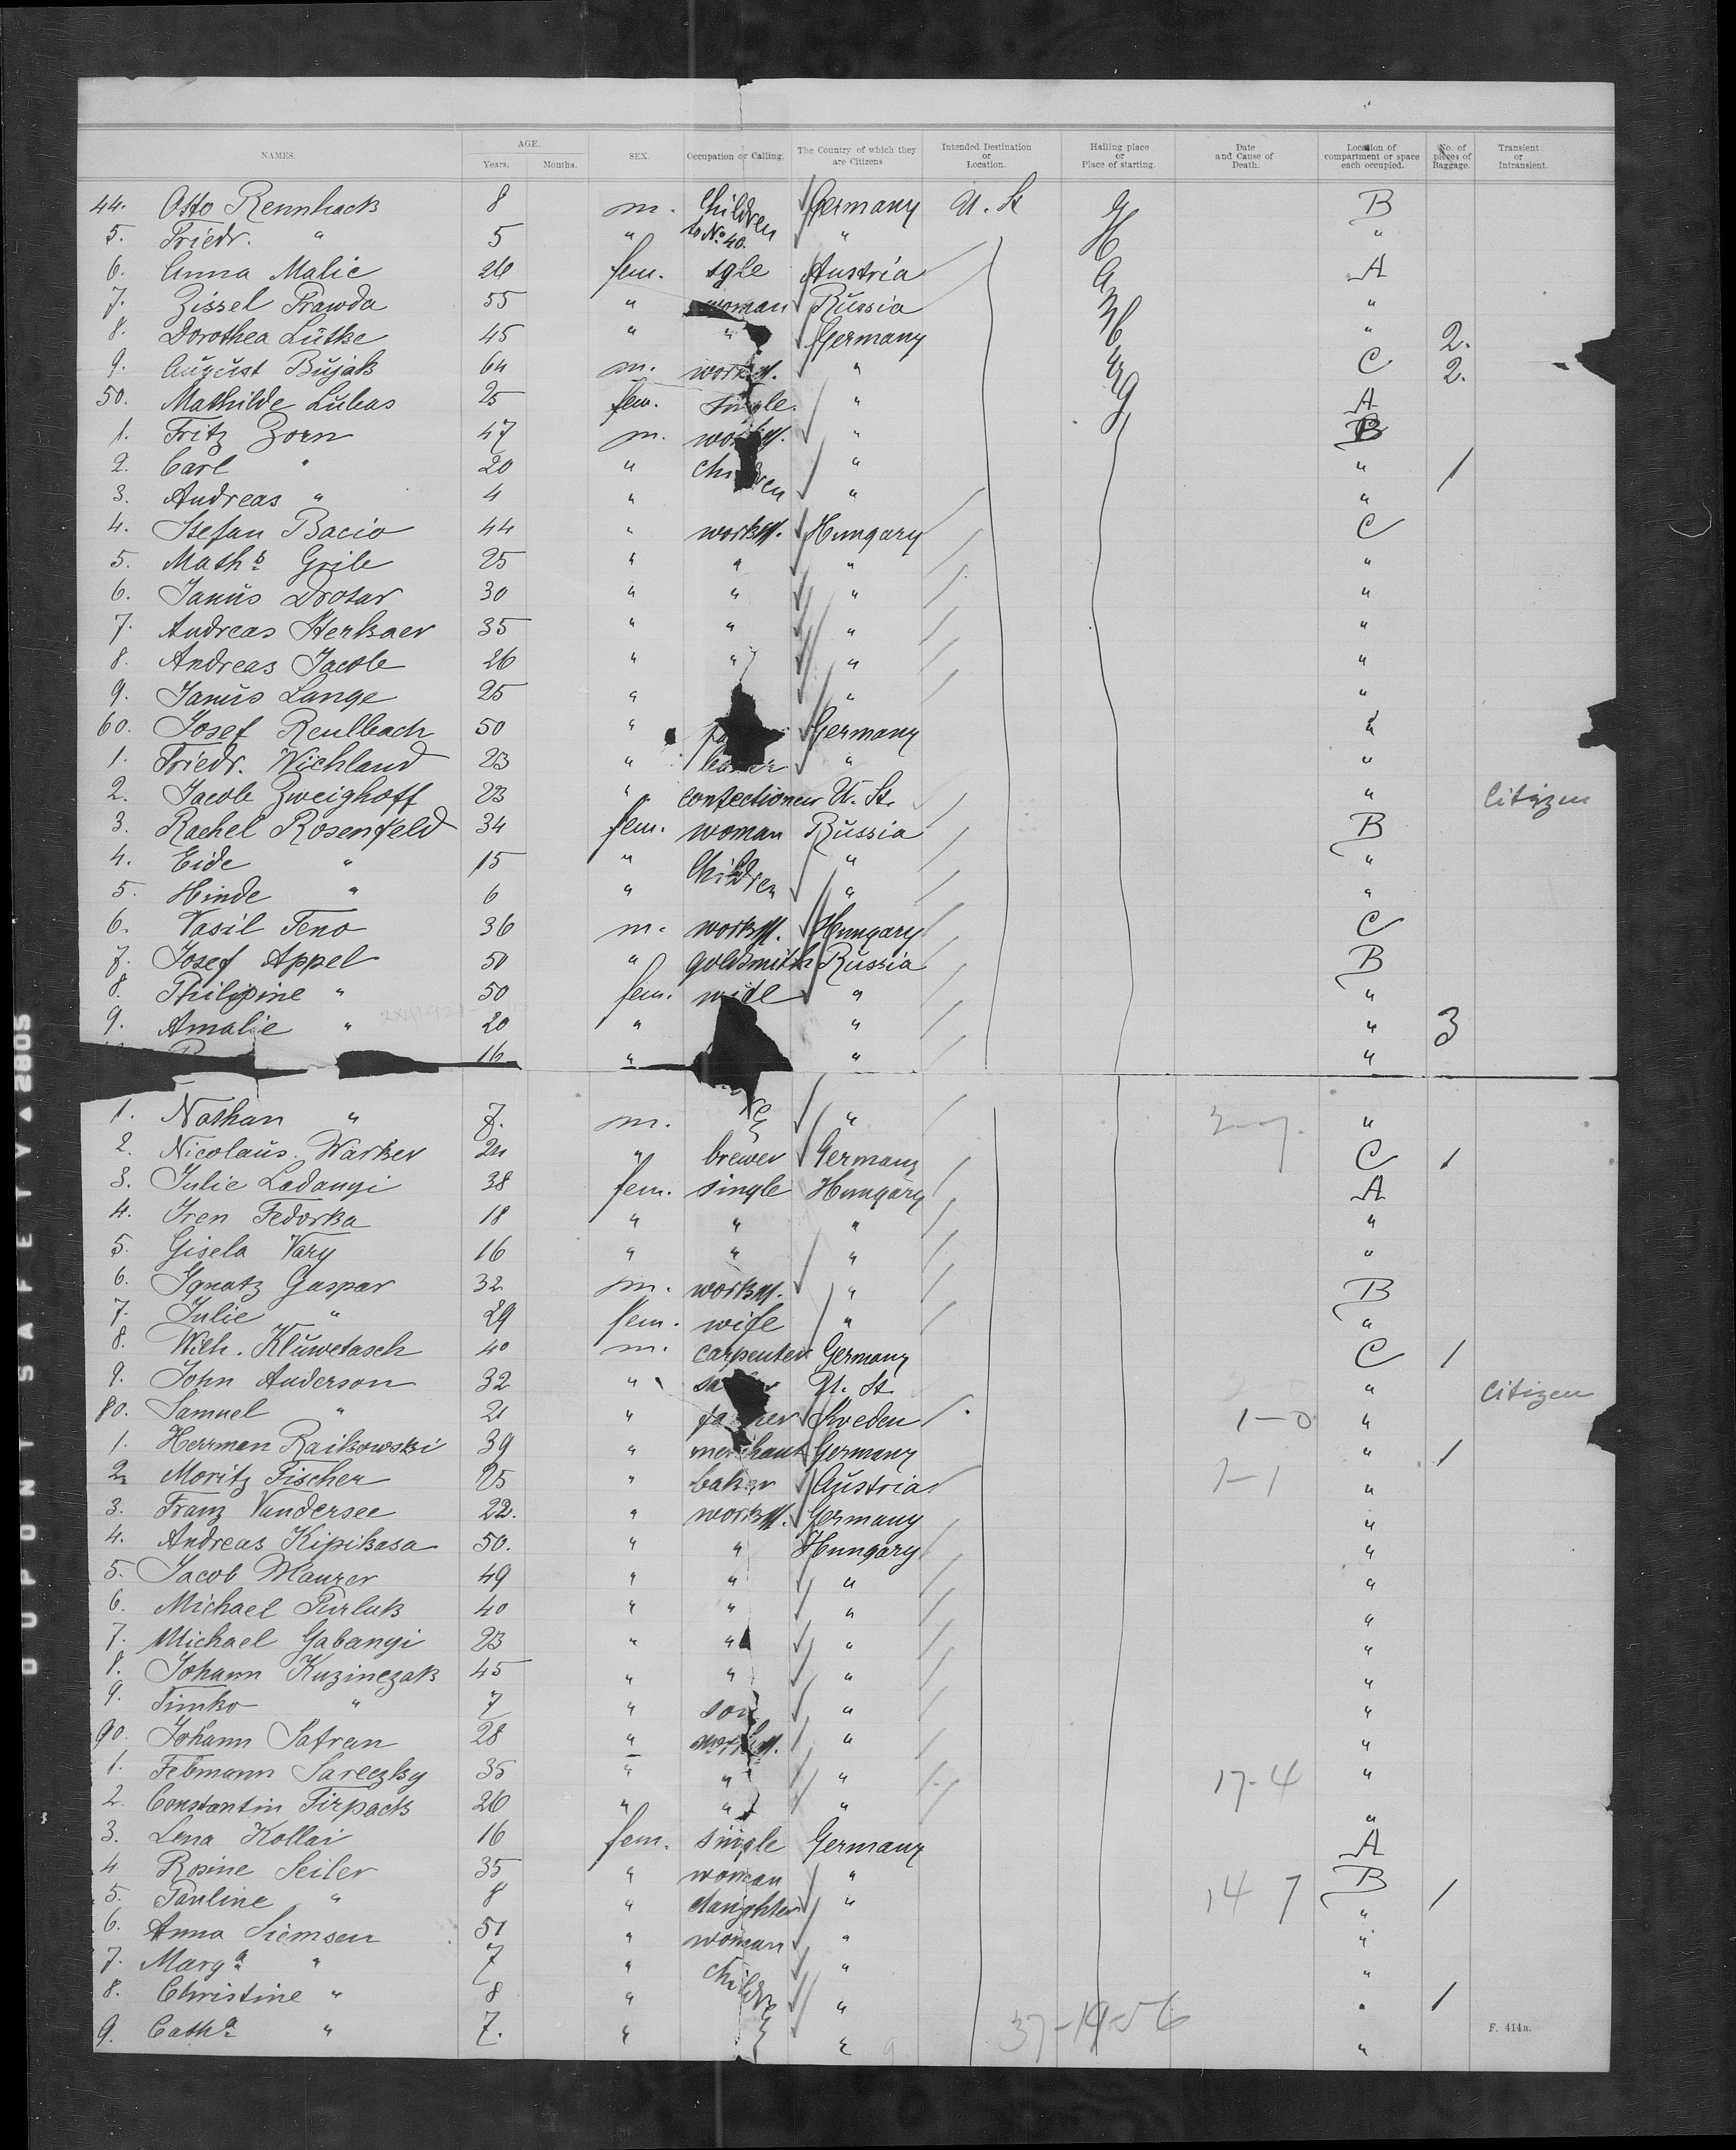 NAMES. AGE. Years. Months. SEX. Occupation or Calling. The Country of which they are Citizens Intended Destination or Location. Hailing place or Place of starting. Date and Cause of Death. Location of compartment or space each occupied. No. of pieces of Baggage. Transient or Intransient.
44. Otto Rennhack 8 m. Children Germany U. St B
5. Friedr. " 5 " to No. 40. " "
6. Anna Malic 26 fem. sgle Austria A
7. Zissel Prawda 55 " woman Russia "
8. Dorothea Lütke 45 " " Germany " 2.
9. August Bujak 64 m. workm. " C 2.
50. Mathilde Lukas 25 fem. single. " A
1. Fritz Zorn 47 m. workm. " B
2. Carl " 20 " children " " 1
3. Andreas " 4 " " "
4. Stefan Bacio 44 " workm. Hungary C
5. Maths Grib 25 " " " "
6. Janus Drotar 30 " " " "
7. Andreas Herkaer 35 " " " "
8. Andreas Jacob 26 " " " "
9. Janus Lange 25 " " "
60. Josef Reulbach 50 " Germany "
1. Friedr. Wichland 23 " " "
2. Jacob Zweighoff 23 " confectioner U. St. " Citizen
3. Rachel Rosenfeld 34 fem. woman Russia B
4. Eide " 15 " Children " "
5. Hinde " 6 " " "
6. Vasil Feno 36 m. workm. Hungary C
7. Josef Appel 50 " goldsmith Russia B
8. Philippine " 50 fem. wife " "
9. Amalie " 20 " " " 3
16 " " "
1. Nathan " 7. m. " "
2. Nicolaus Warker 24 " brewer Germany C 1
3. Julie Ladanyi 38 fem. single Hungary A
4. Iren Fedorka 18 " " " "
5. Gisela Vary 16 " " " "
6. Ignatz Gaspar 32 m. workm. " B
7. Julie " 29 fem. wife " "
8. Wilh. Kluwetasch 40 m. carpenter Germany C 1
9. John Anderson 32 " U. St. " Citizen
80. Samuel " 21 " Sveden 1-0 "
1. Herrman Raikowski 39 " merchant Germany " 1
2. Moritz Fischer 25 " baker Austria 7-1 "
3. Franz Vandersee 22. " workm. Germany "
4. Andreas Kipikasa 50. " " Hungary "
5. Jacob Maurer 49 " " " "
6. Michael Purluk 40 " " " "
7. Michael Gabanyi 23 " " " "
8. Johann Kuzinczak 45 " " " "
9. Timko " 7 " son " "
90. Johann Safran 28 " workm. " "
1. Febmann Sareczky 35 " " " 17-4 "
2. Constantin Tirpack 26 " " " "
3. Lena Kollai 16 fem. single Germany A
4. Rosine Seiler 35 " woman " B
5. Pauline " 8 " daughter " 14 7 " 1
6. Anna Siemsen 51 " woman " "
7. Marga " 7 " children " "
8. Christine " 8 " " " 1
9. Catha " 7. " " "
37-19-56
F. 414a.
DUPONT SAFETY ▲ 2805